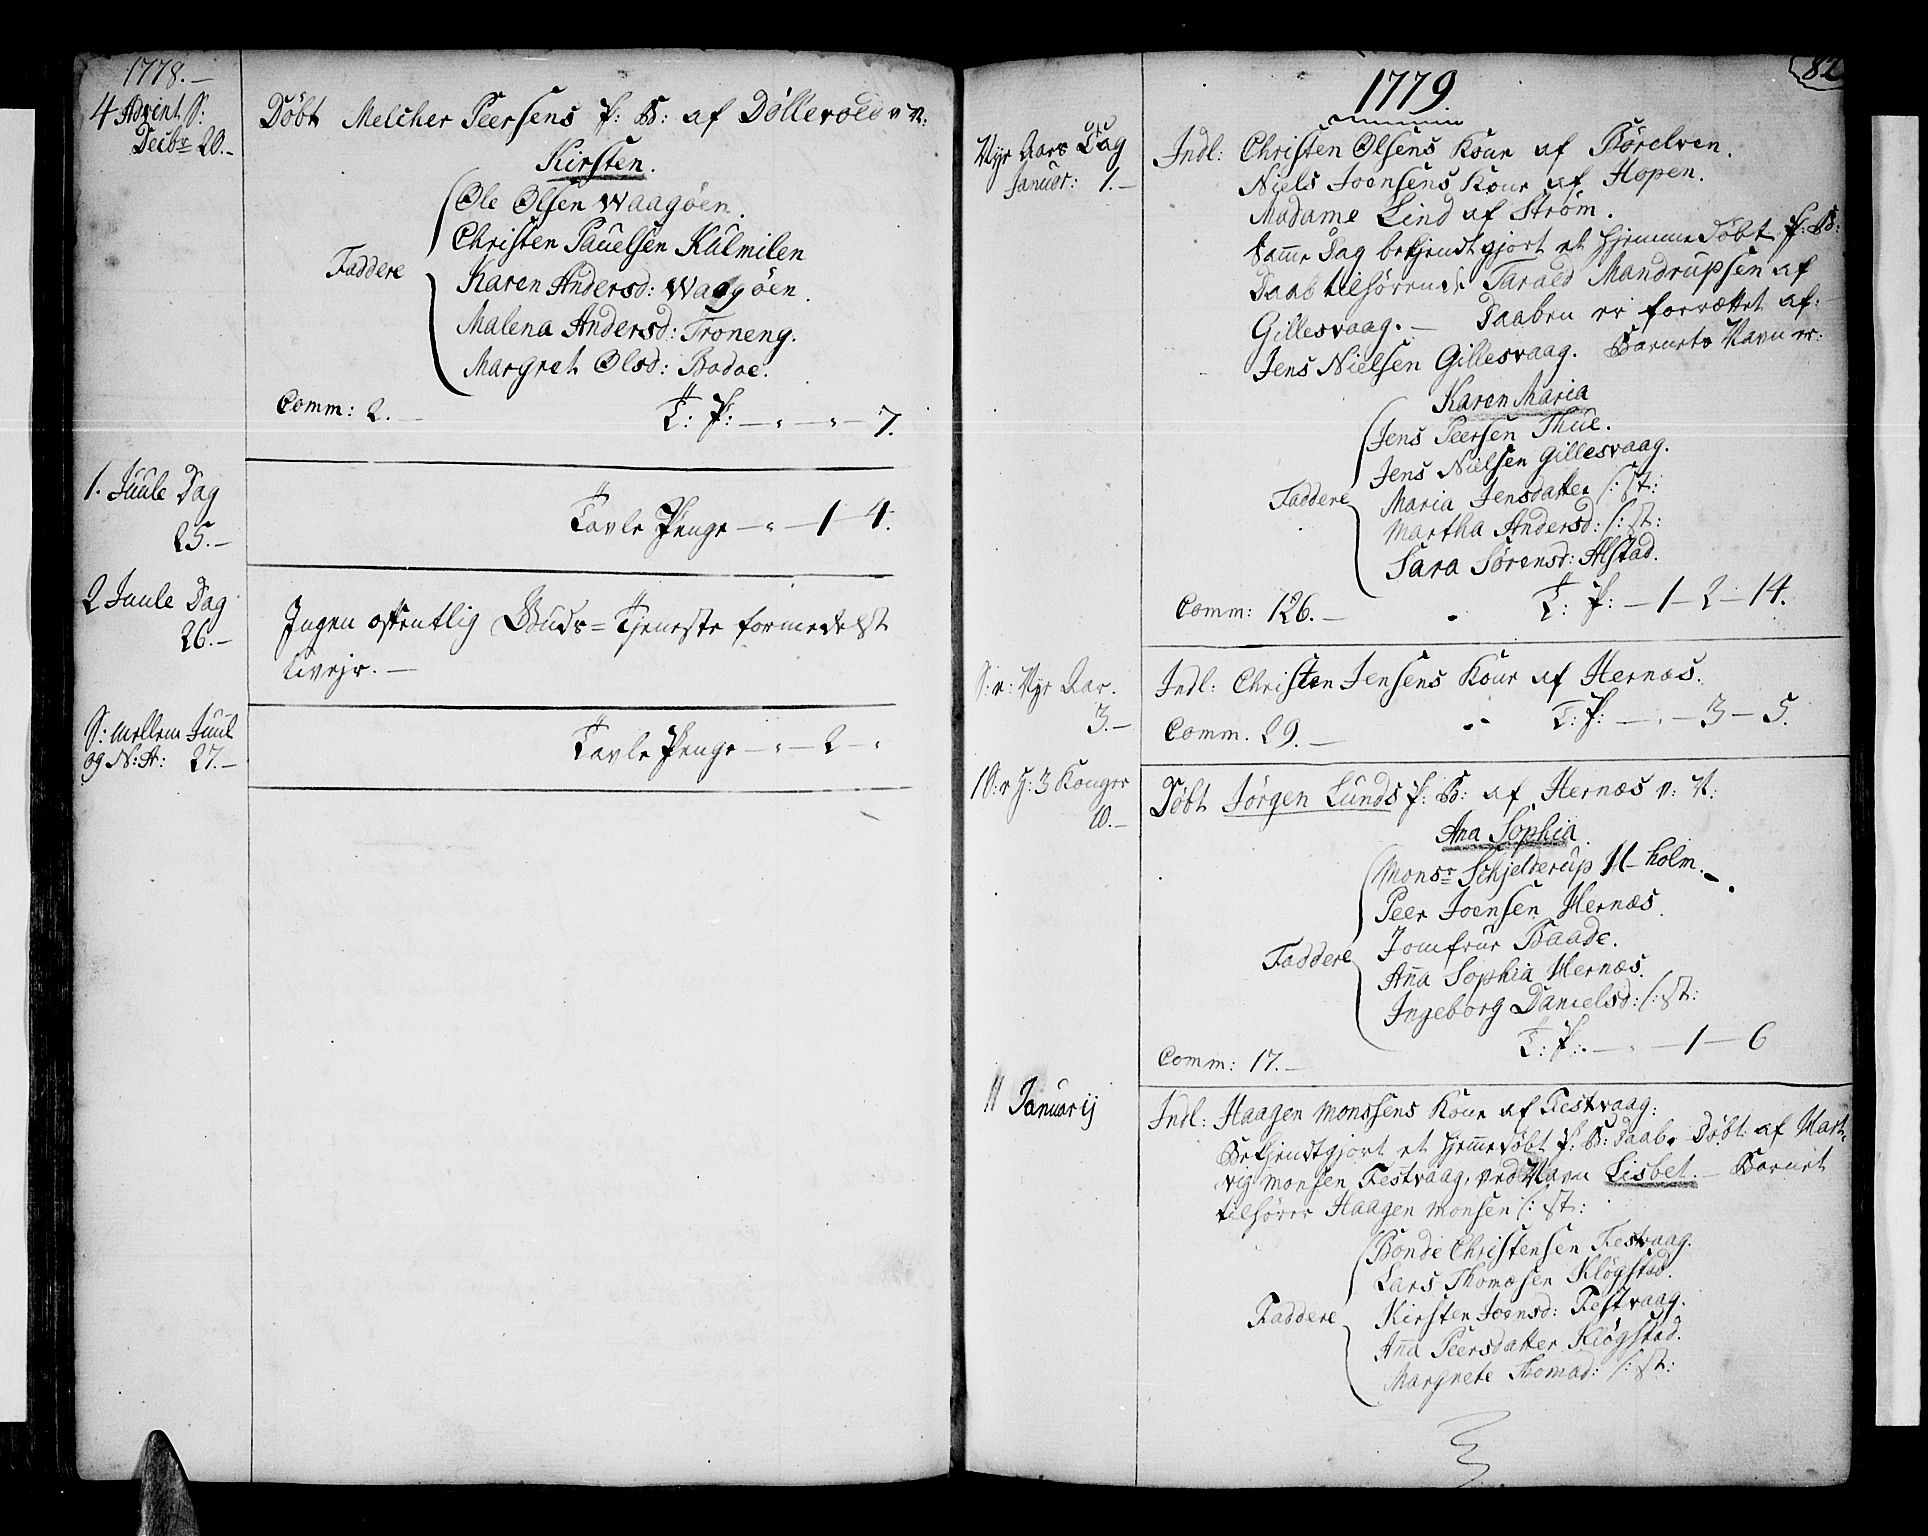 1778.-
4 Advent S:
Decbr 20.-
Döbt Melcher Peersens P: B: af Döllevold v N:
Kirsten.
Ole Olsen Waagöen.
Christen Pauelsen Kulmilen
Faddere
Karen Andersd: Waagöen.
Malena Andersd: Troneng.
Margret Olsd: Bodoe.
Comm: 2.-
T: P: - " - " - 7.
1. Juule Dag
25.-
Tavle Penge - " - 1 - 4.
2 Juule Dag
26.-
Ingen offentlig Guds=Tjeneste formedelst
Uvejr.-
S: mellem Juul
og N: A: 27.-
Tavle Penge - " - 2 - "
82
1779.
Nye Aars Dag
Januar: 1.-
Indl: Christen Olsens Kone af Börelven.
Niels Joensens Kone af Hopen.
Madame Lind af Ström.
Samme Dag bekjendtgjort et hjemmedöbt P: B:
Daab tilhörende Tarald Mandrupsen af
Gillesvaag.- Daaben er forrettet af:
Jens Nielsen Gillesvaag. Barnets Navn er:
Karen Maria
Jens Peersen Thue.
Jens Nielsen Gillesvaag.
Faddere
Maria Jensdatter /: st:
Martha Andersd: /: st:
Sara Sörensd: Alstad.
Comm: 126.-
T: P: - 1 - 2 - 14.
S: e: Nye Aar.
3.-
Indl: Christen Jensens Kone af Hernæs.
Comm. 29.-
T: P: - " - 3 - 5.
1 S: e H: 3 Konger
10.-
Döbt Jörgen Lunds P: B: af Hernæs v: N:
Ana Sophia
Monsr Schjelderup H-holm.
Peer Joensen Hernæs.
Faddere
Jomfrue Baade.
Ana Sophia Hernæs.
Ingeborg Danielsd: /: st:
Comm: 17.-
T: P: - " - 1 - 6
11 Januarij
Indl: Haagen Monssens Kone af Festvaag:
Bekjendtgjort et hjemmedöbt P: B: Daab, Döbt af Hart-
vig Monsen Festvaag, ved Navn Lisbet.- Barnet
tilhörer Haagen Monsen /: st:
Bonde Christensen Festvaag.
Lars Thomæsen Klögstad.
Faddere
Kirsten Joensd: Festvaag.
Ana Peersdatter Klögstad.
Margrete Thomad: /: st: